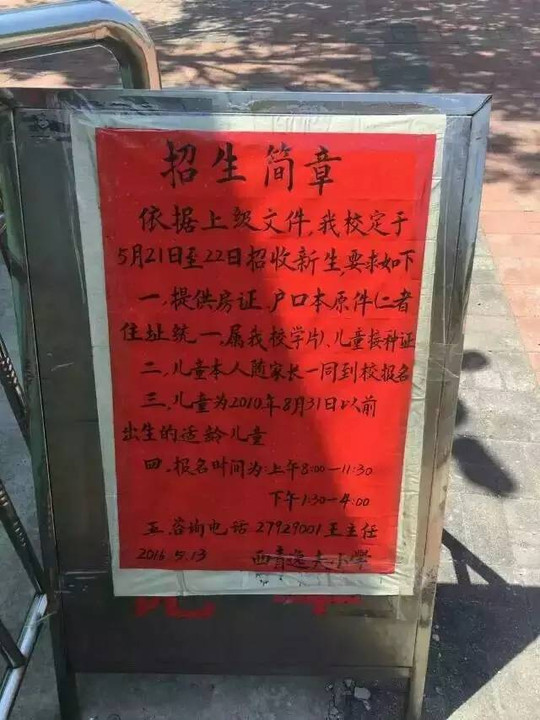 招生简章
依据上级文件,我校定于
5月21日至22日招收新生,要求如下
一、提供房证、户口本原件(二者
住址统一、属我校学片)、儿童接种证
二、儿童本人随家长一同到校报名
三、儿童为2010年8月31日以前
出生的适龄儿童
四、报名时间为:上午8:00—11:30
下午1:30—4:00
五、咨询电话 27929001 王主任
2016.5.13 西青逸夫小学